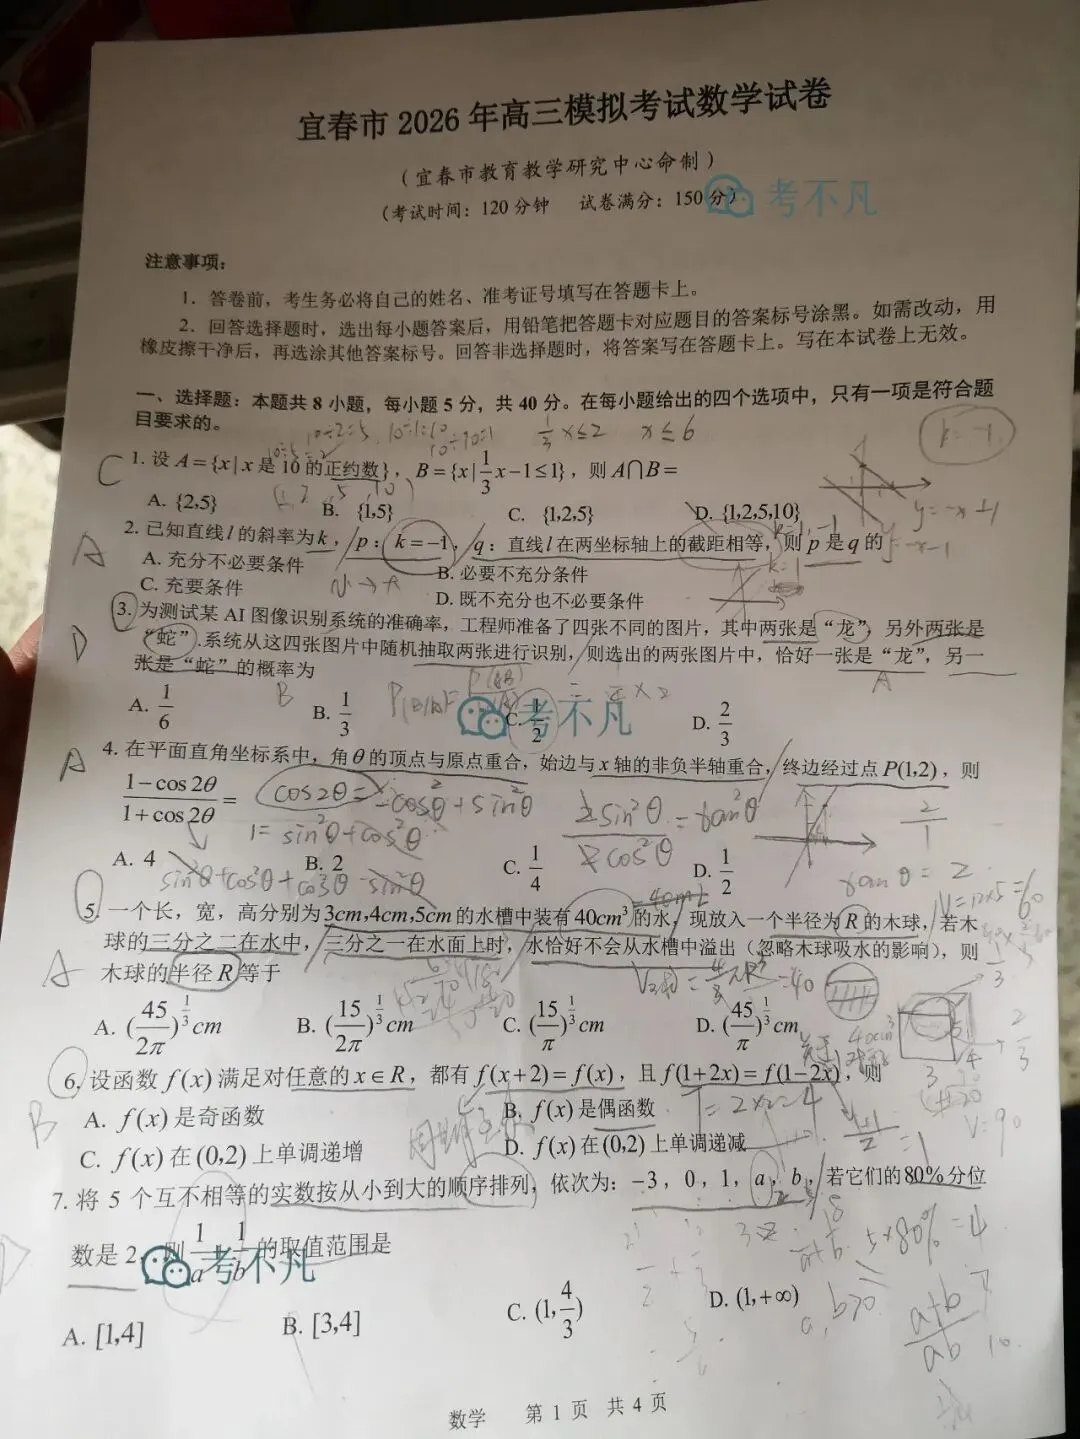 宜春市 2026 年高三模拟考试数学试卷
（宜春市教育教学研究中心命制）
（考试时间：120 分钟 试卷满分：150 分）
考不凡
注意事项：
1．答卷前，考生务必将自己的姓名、准考证号填写在答题卡上。
2．回答选择题时，选出每小题答案后，用铅笔把答题卡对应题目的答案标号涂黑。如需改动，用
橡皮擦干净后，再选涂其他答案标号。回答非选择题时，将答案写在答题卡上。写在本试卷上无效。
一、选择题：本题共 8 小题，每小题 5 分，共 40 分。在每小题给出的四个选项中，只有一项是符合题
目要求的。
10÷2=5 10÷1=10 1/3 x≤2 x≤6 k=-1
C 1. 设 A={x|x 是 10 的正约数}，B={x|1/3 x-1≤1}，则 A∩B=
A. {2,5} B. {1,5} C. {1,2,5} D. {1,2,5,10}
y=-x+1
A 2. 已知直线 l 的斜率为 k，p：k=-1，q：直线 l 在两坐标轴上的截距相等，则 p 是 q 的
A. 充分不必要条件 B. 必要不充分条件
C. 充要条件 D. 既不充分也不必要条件
D 3. 为测试某 AI 图像识别系统的准确率，工程师准备了四张不同的图片，其中两张是“龙”，另外两张是
“蛇”.系统从这四张图片中随机抽取两张进行识别，则选出的两张图片中，恰好一张是“龙”，另一
张是“蛇”的概率为
A. 1/6 B. 1/3 C. 1/2 D. 2/3
考不凡
A 4. 在平面直角坐标系中，角 θ 的顶点与原点重合，始边与 x 轴的非负半轴重合，终边经过点 P(1,2)，则
(1-cos2θ)/(1+cos2θ)=
cos2θ=-cos²θ+sin²θ 2sin²θ/2cos²θ=tan²θ 2/1
1=sin²θ+cos²θ
A. 4 B. 2 C. 1/4 D. 1/2
sin²θ+cos²θ+cos²θ-sin²θ tanθ=2
5. 一个长，宽，高分别为 3cm,4cm,5cm 的水槽中装有 40cm³ 的水，现放入一个半径为 R 的木球，若木
球的三分之二在水中，三分之一在水面上时，水恰好不会从水槽中溢出（忽略木球吸水的影响），则
A 木球的半径 R 等于
A. (45/2π)^(1/3) cm B. (15/2π)^(1/3) cm C. (15/π)^(1/3) cm D. (45/π)^(1/3) cm
6. 设函数 f(x) 满足对任意的 x∈R，都有 f(x+2)=f(x)，且 f(1+2x)=f(1-2x)，则
B A. f(x) 是奇函数 B. f(x) 是偶函数
T=2×2=4 V=90
C. f(x) 在 (0,2) 上单调递增 D. f(x) 在 (0,2) 上单调递减
7. 将 5 个互不相等的实数按从小到大的顺序排列，依次为：-3，0，1，a，b，若它们的 80% 分位
数是 2，则 1/a+1/b 的取值范围是
5×80%=4
考不凡
A. [1,4] B. [3,4] C. (1,4/3) D. (1,+∞)
a,b>0 (a+b)/ab
数学 第 1 页 共 4 页